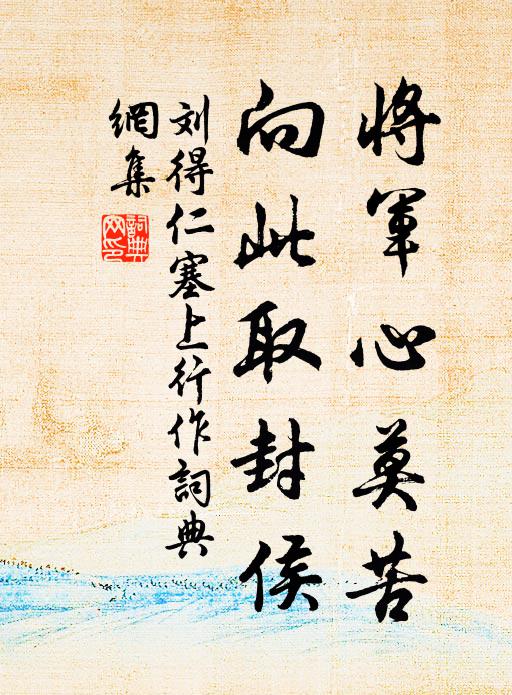 將軍心莫苦
向此取封侯
刘得仁塞上行作詞典
網集
詞典網印